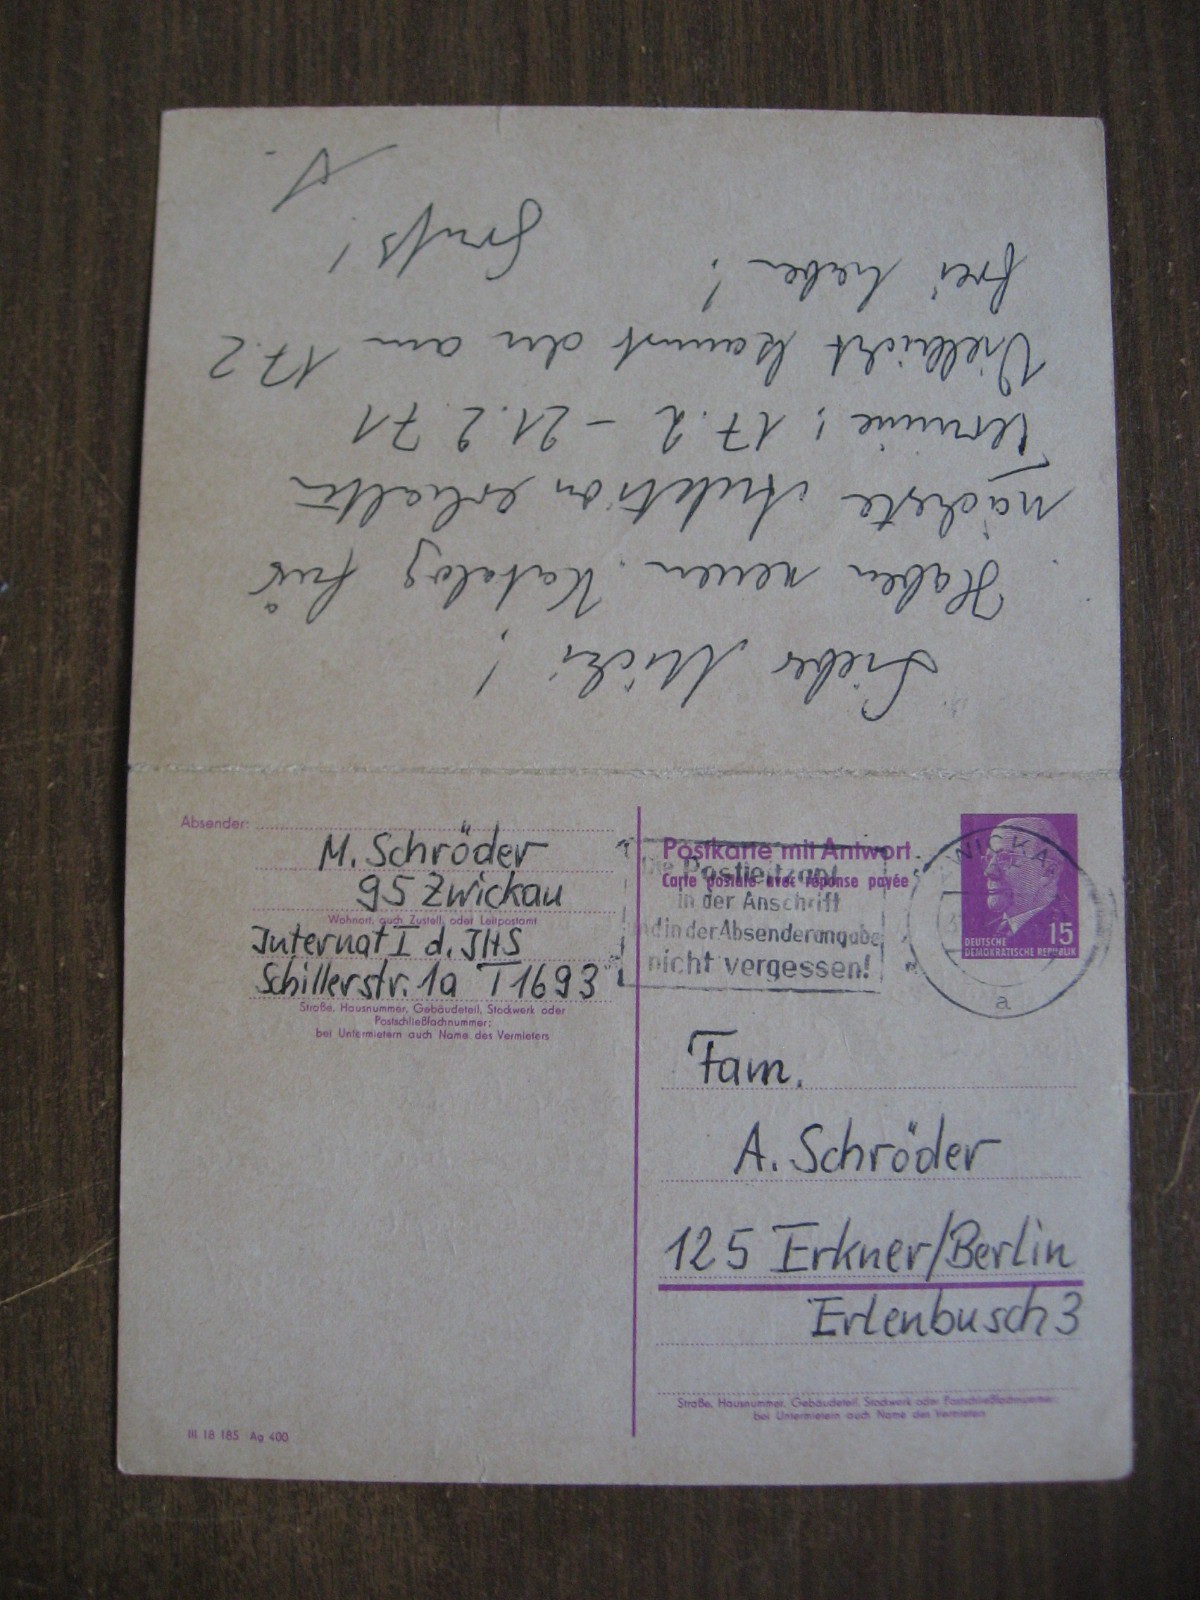 Lieber Michi!
Haben neuen Katalog für
nächste Auktion erhalten
Termine: 17.2 – 21.2.71
Vielleicht kannst du am 17.2
frei haben!
Gruß!
Absender:
M. Schröder
95 Zwickau
Wohnort, auch Zustell- oder Leitpostamt
Internat I d. JHS
Schillerstr. 1a I 1693
Straße, Hausnummer, Gebäudeteil, Stockwerk oder
Postschließfachnummer;
bei Untermietern auch Name des Vermieters
III 18 185 Ag 400
Postkarte mit Antwort
Carte postale avec réponse payée
Die Postleitzahl
in der Anschrift
und in der Absenderangabe
nicht vergessen!
ZWICKAU
a
15
DEUTSCHE
DEMOKRATISCHE REPUBLIK
Fam.
A. Schröder
125 Erkner/Berlin
Erlenbusch 3
Straße, Hausnummer, Gebäudeteil, Stockwerk oder Postschließfachnummer;
bei Untermietern auch Name des Vermieters